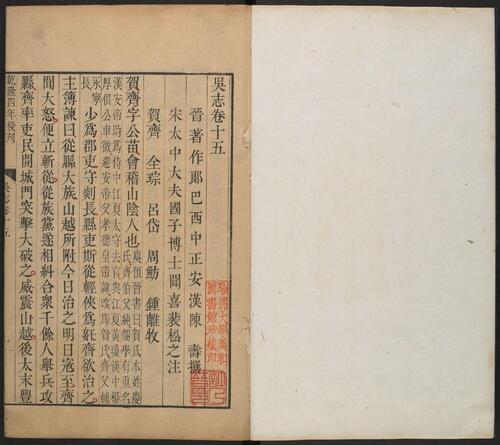 吳志卷十五
晉著作郎巴西中正安漢陳壽撰
宋太中大夫國子博士聞喜裴松之注
賀齊 全琮 呂岱 周魴 鍾離牧
賀齊字公苗會稽山陰人也虞預晉書曰賀氏本姓慶
氏齊伯父純儒學有重名
漢安帝時爲侍中江夏太守去官與江夏黃瓊漢中楊
厚俱公車徵避安帝父孝德皇帝諱改爲賀氏齊父輔
永寧
長少爲郡吏守剡長縣吏斯從輕俠爲姧齊欲治之
主簿諫曰從縣大族山越所附今日治之明日寇至齊
聞大怒便立斬從從族黨遂相糾合衆千餘人舉兵攻
縣齊率吏民開城門突擊大破之威震山越後太末豐
乾隆四年校刊
吳志卷十五
一